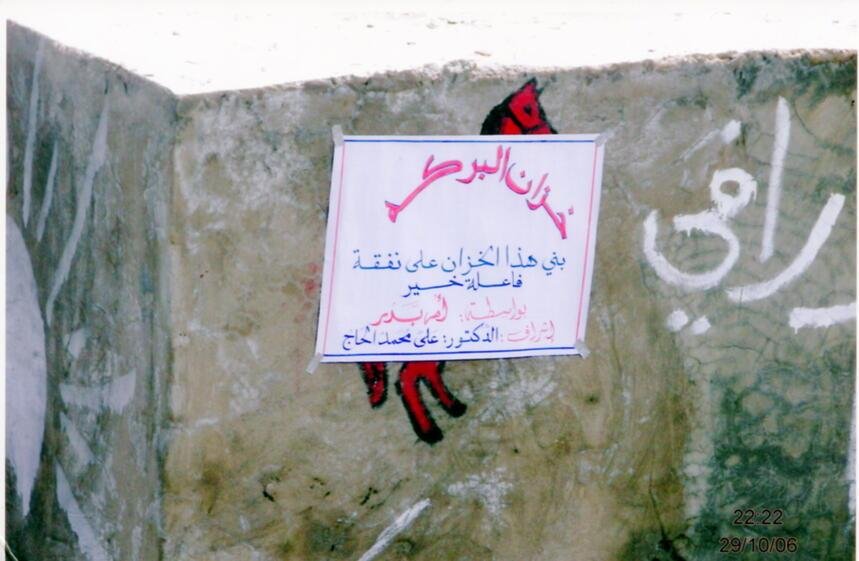 خزان البركة
بني هذا الخزان على نفقة
فاعلة خير
بواسطة: أم بدر
إشراف: الدكتور: على محمد الحاج
راقي
22:22
29/10/06